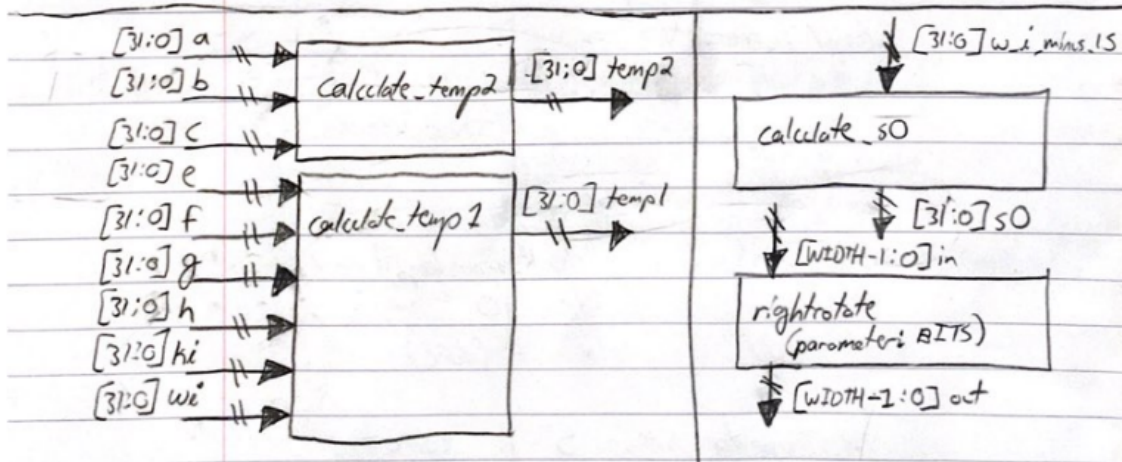 [31:0] a
[31:0] b
[31:0] c
[31:0] e
[31:0] f
[31:0] g
[31:0] h
[31:0] ki
[31:0] wi
calculate_temp2
[31:0] temp2
calculate_temp1
[31:0] temp1
[31:0] w_i_minus_15
calculate_s0
[31:0] s0
[WIDTH-1:0] in
rightrotate
(parameter: BITS)
[WIDTH-1:0] out